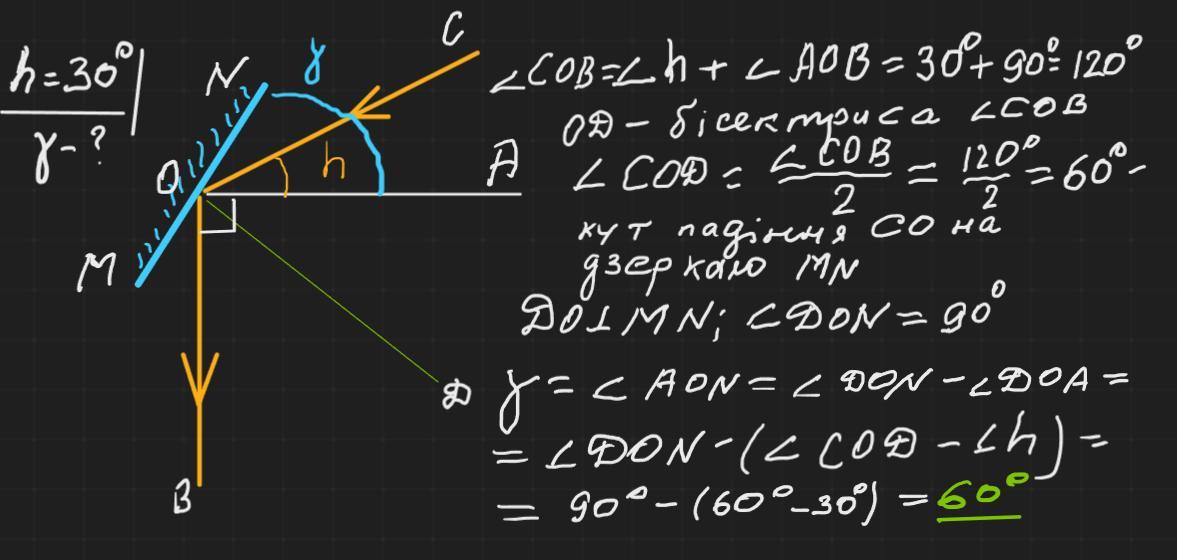 h=30°
γ-?
N
γ
C
O
h
A
M
D
B
∠COB=∠h+∠AOB=30°+90°=120°
OD-бісектриса ∠COB
∠COD=∠COB/2=120°/2=60°-
кут падіння CO на
дзеркало MN
DO⊥MN; ∠DON=90°
γ=∠AON=∠DON-∠DOA=
=∠DON-(∠COD-∠h)=
=90°-(60°-30°)=60°